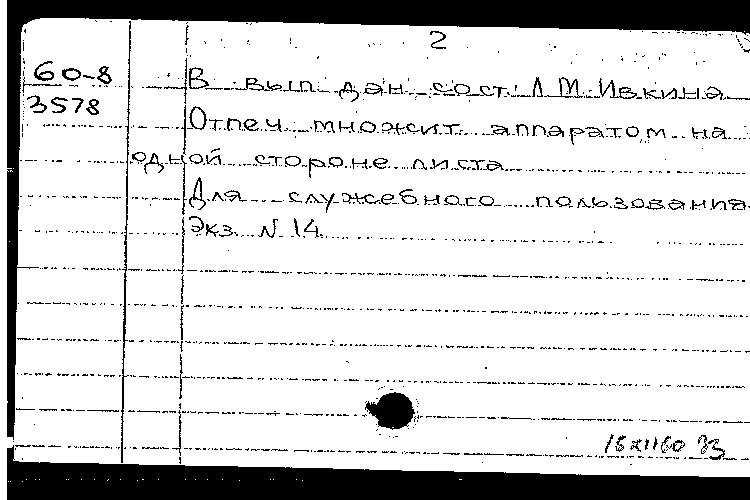 2
60-8
3578
В вып. дан. сост. Л.М. Ивкина
Отпеч. множит. аппаратом на
одной стороне листа
Для служебного пользования
Экз. N 14